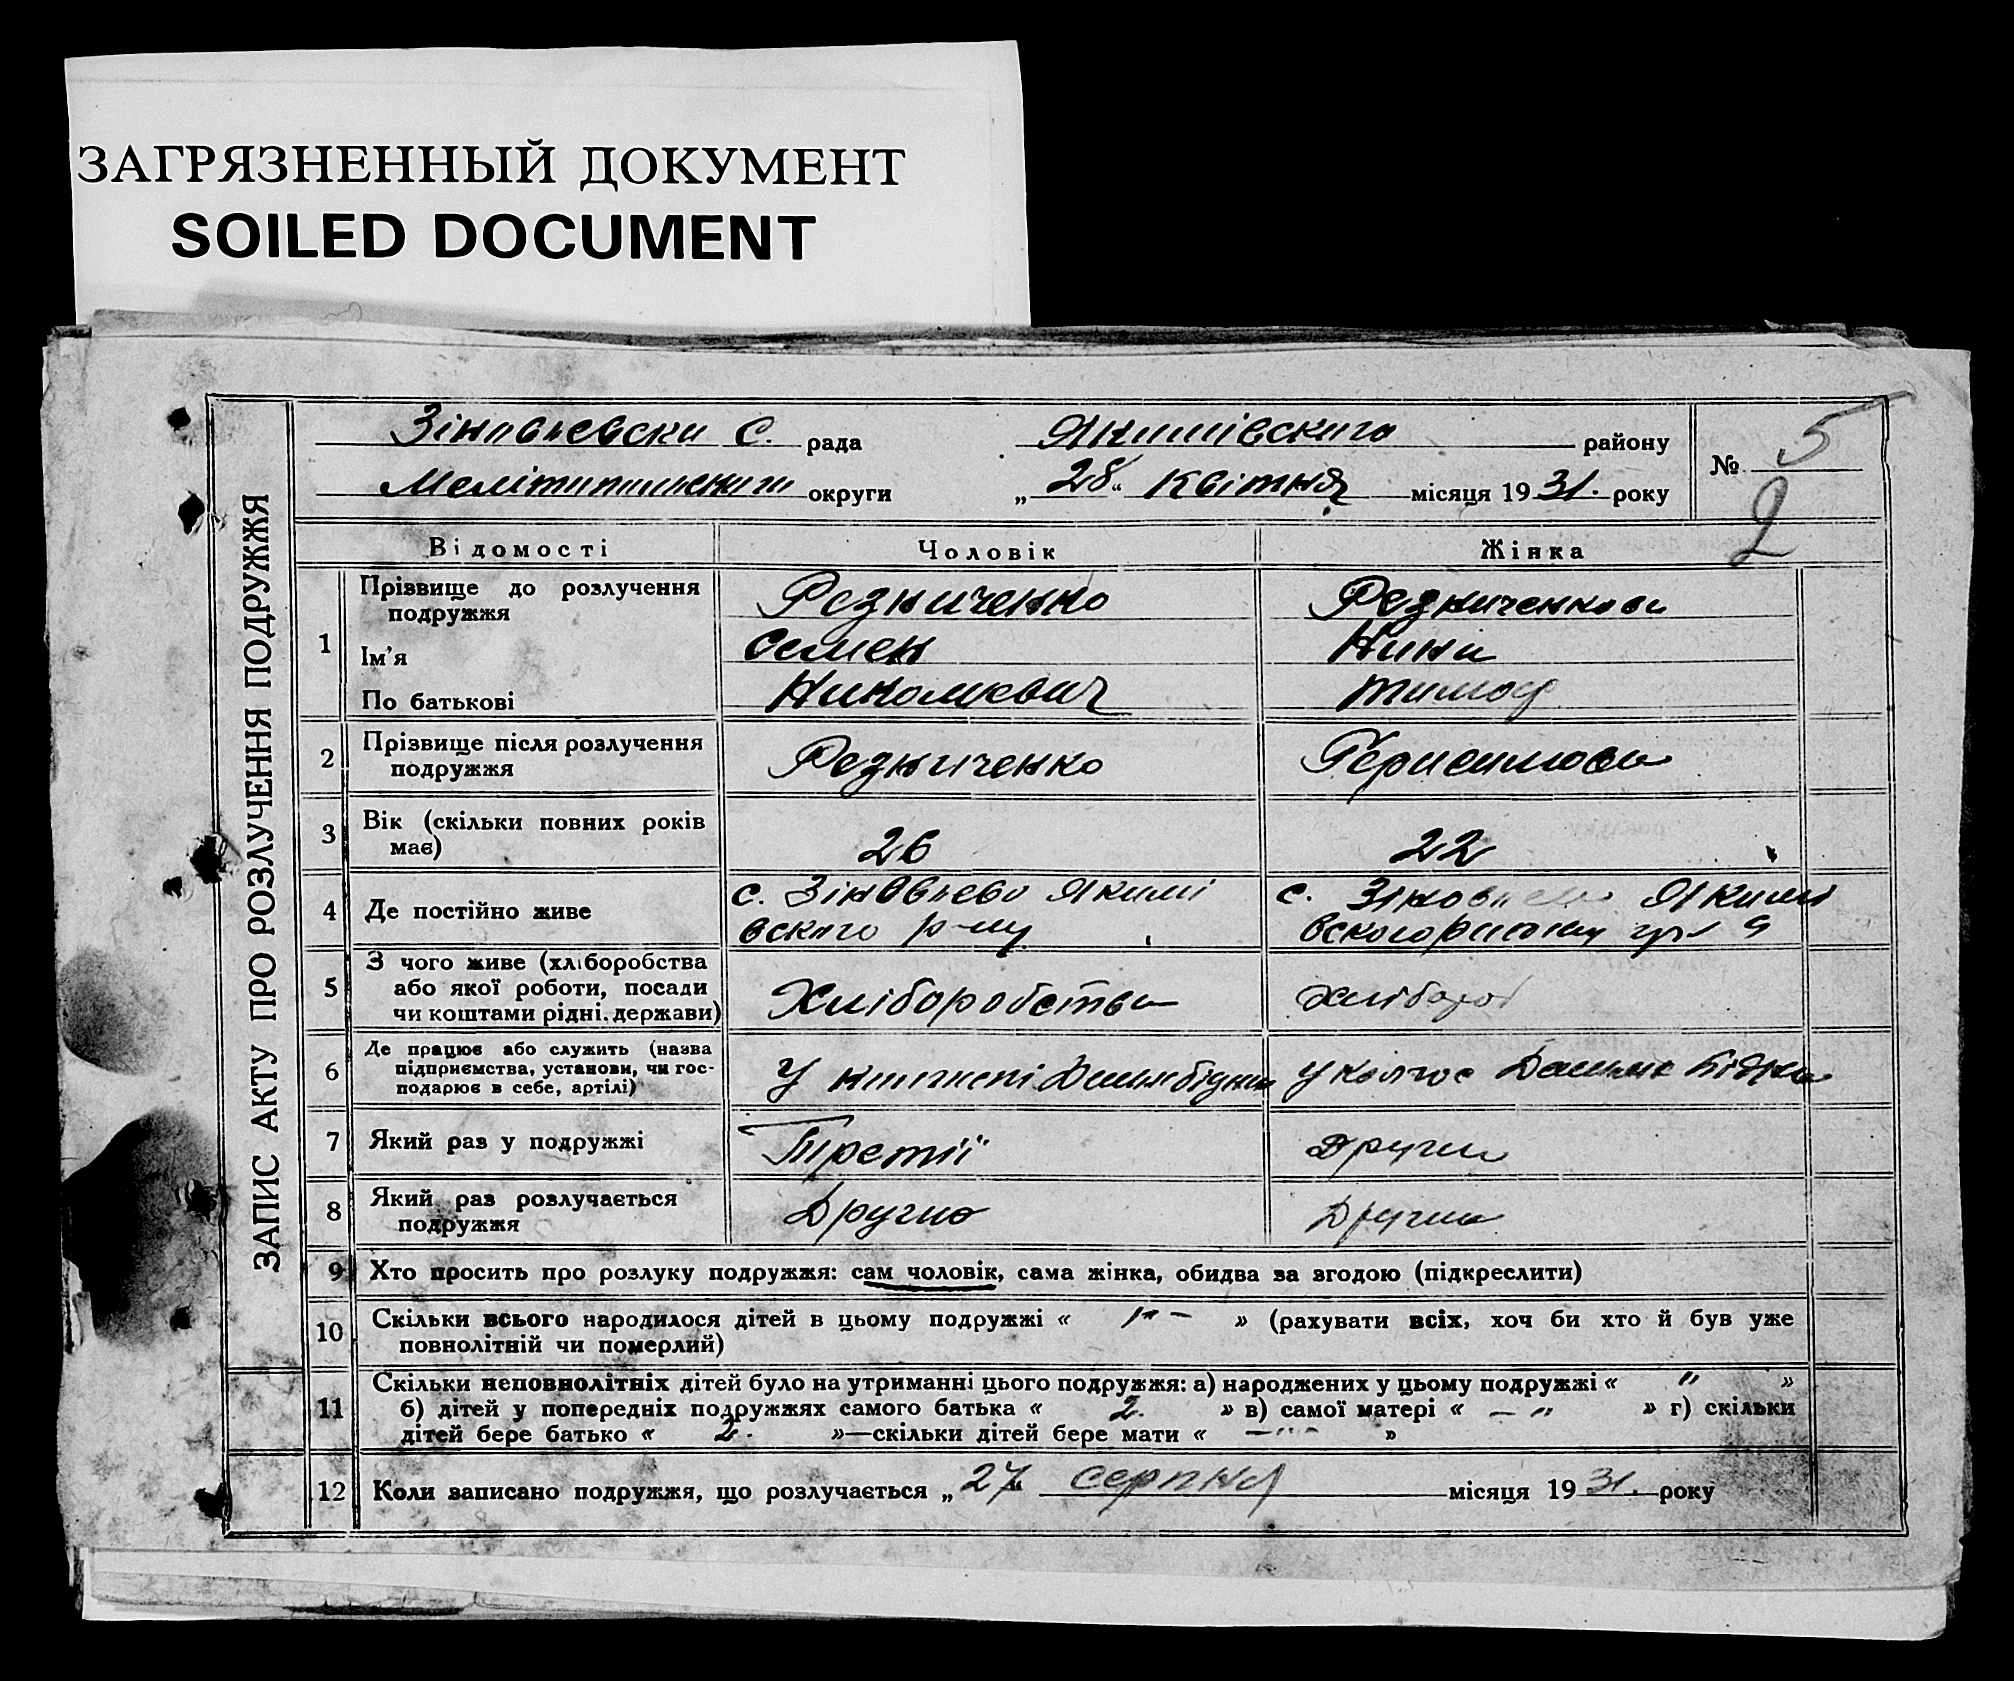 ЗАГРЯЗНЕННЫЙ ДОКУМЕНТ
SOILED DOCUMENT
ЗАПИС АКТУ ПРО РОЗЛУЧЕННЯ ПОДРУЖЖЯ
Зіновьевска С. рада Якимівского району
округи „28“ Квітня місяця 1931. року
№ 5
2
Відомості Чоловік Жінка
1 Прізвище до розлучення подружжя Резниченко Резниченкова
Ім'я Семен Нина
По батькові Николаевич Тимоф
2 Прізвище після розлучення подружжя Резниченко Герасимова
3 Вік (скільки повних років має) 26 22
4 Де постійно живе с. Зіновьево Якимі с. Зіновьево Якимі
вского р-ну вского району
5 З чого живе (хліборобства або якої роботи, посади чи коштами рідні, держави) Хліборобства хлібороб
6 Де працює або служить (назва підприємства, установи, чи господарює в себе, артілі) У Демьян Бідний У колгос Демьян Бідни
7 Який раз у подружжі Третій Други
8 Який раз розлучається подружжя Друго Други
9 Хто просить про розлуку подружжя: сам чоловік, сама жінка, обидва за згодою (підкреслити)
10 Скільки всього народилося дітей в цьому подружжі « — » (рахувати всіх, хоч би хто й був уже
повнолітній чи померлий)
11 Скільки неповнолітніх дітей було на утриманні цього подружжя: а) народжених у цьому подружжі « " »
б) дітей у попередніх подружжях самого батька « 2. » в) самої матері « — " » г) скільки
дітей бере батько « 2. »—скільки дітей бере мати « — " — »
12 Коли записано подружжя, що розлучається „27“ серпня місяця 1931. року